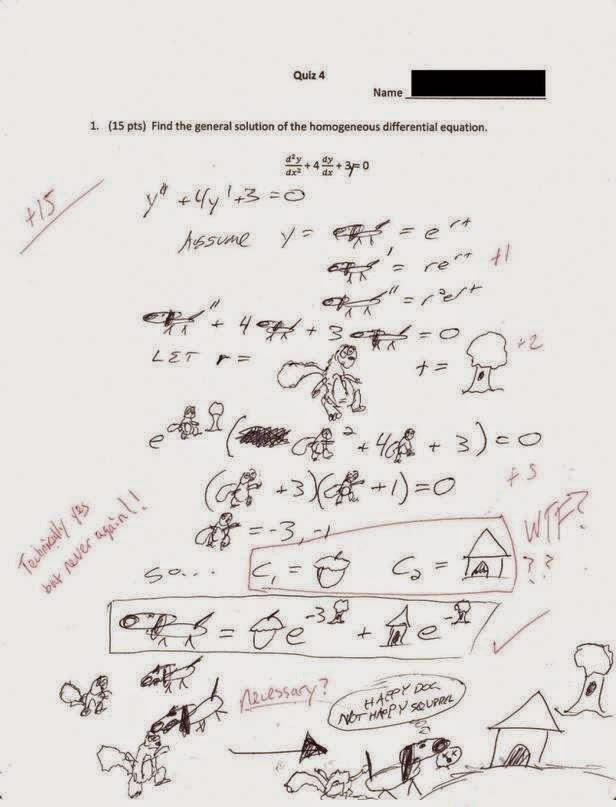 Quiz 4
Name
1. (15 pts) Find the general solution of the homogeneous differential equation.
d²y/dx² + 4 dy/dx + 3y = 0
+15
y" + 4y' + 3 = 0
ASSUME y = = e^rt
' = re^rt +1
" = r²e^rt
" + 4 + 3 = 0
LET r = t = +2
e ( ² + 4 + 3) = 0
( + 3)( + 1) = 0
= -3, -1
Technically yes
but never again!!
WTF?
???
so... C₁ = C₂ =
= e^-3 + e^-
necessary?
HAPPY DOG
NOT HAPPY SQUIRREL